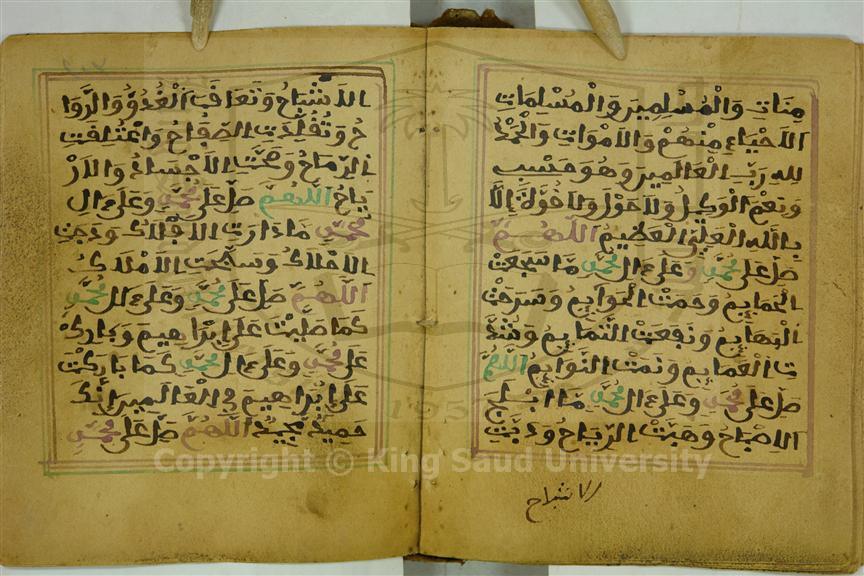 مِنَاتِ وَالْمُسْلِمِينَ وَالْمُسْلِمَاتِ
الْأَحْيَاءِ مِنْهُمْ وَالْأَمْوَاتِ وَالْحَمْدُ
لِلهِ رَبِّ الْعَالَمِينَ وَهُوَ حَسْبِي
وَنِعْمَ الْوَكِيلُ وَلَا حَوْلَ وَلَا قُوَّةَ إِلَّا
بِاللهِ الْعَلِيِّ الْعَظِيمِ اللَّهُمَّ
صَلِّ عَلَى مُحَمَّدٍ وَعَلَى ءَالِ مُحَمَّدٍ مَا سَجَعَتِ
الْحَمَايِمُ وَحَمَتِ الْحَوَايِمُ وَسَرَحَتِ
الْبَهَايِمُ وَنَفَعَتِ التَّمَايِمُ وَشُدَّ
تِ الْعَمَايِمُ وَنَمَتِ النَّوَايِمُ اللَّهُمَّ
صَلِّ عَلَى مُحَمَّدٍ وَعَلَى ءَالِ مُحَمَّدٍ مَا ابْلَجَ
الْإِصْبَاحُ وَهَبَّتِ الرِّيَاحُ وَدَبَّتِ
الاشباح
الْأَشْبَاحُ وَتَعَاقَبَ الْغُدُوُّ وَالرَّوَا
حُ وَتُقُلِّدَتِ الصِّفَاحُ وَاعْتُقِلَتِ
الرِّمَاحُ وَصَحَّتِ الْأَجْسَادُ وَالْأَرْ
وَاحُ اللَّهُمَّ صَلِّ عَلَى مُحَمَّدٍ وَعَلَى ءَالِ
مُحَمَّدٍ مَا دَارَتِ الْأَفْلَاكُ وَدَجَتِ
الْأَحْلَاكُ وَسَبَّحَتِ الْأَمْلَاكُ
اللَّهُمَّ صَلِّ عَلَى مُحَمَّدٍ وَعَلَى ءَالِ مُحَمَّدٍ
كَمَا صَلَّيْتَ عَلَى إِبْرَاهِيمَ وَبَارِكْ
عَلَى مُحَمَّدٍ وَعَلَى ءَالِ مُحَمَّدٍ كَمَا بَارَكْتَ
عَلَى إِبْرَاهِيمَ فِي الْعَالَمِينَ إِنَّكَ
حَمِيدٌ مَجِيدٌ اللَّهُمَّ صَلِّ عَلَى مُحَمَّدٍ
1957
Copyright © King Saud University